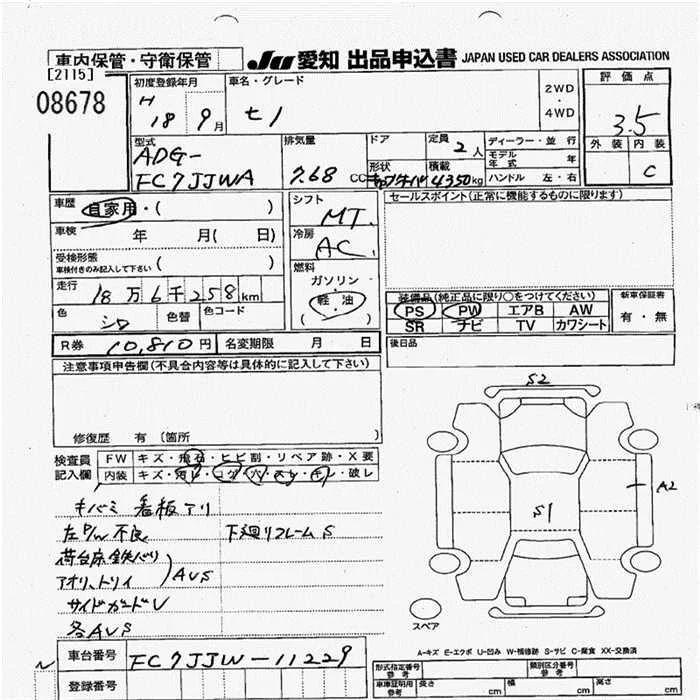 車内保管・守衛保管
JU 愛知 出品申込書 JAPAN USED CAR DEALERS ASSOCIATION
[2115]
08678
初度登録年月
H 18 9月
車名・グレード
セノ
2WD
・
4WD
評価点
3.5
外装 内装
C
型式
ADG-
FC7JJWA
排気量
7.68 CC
ドア
定員
2人
形状
積載
4350kg
ディーラー・並行
モデル年式 年
ハンドル 左・右
車歴 自家用・( )
車検 年 月( 日)
受検形態
車検付きのみ記入して下さい ( )
走行 18万6千258km
色 シロ 色替 色コード
R券 10,810円 名変期限 月 日
シフト
MT
冷房
AC
燃料
ガソリン
・
軽・油
( )
セールスポイント(正常に機能するものに限ります)
装備品(純正品に限り○をつけてください)
PS PW エアB AW
SR ナビ TV カワシート
新車保証書
有・無
後日品
注意事項申告欄(不具合内容等は具体的に記入して下さい)
修復歴 有 〔箇所 〕
検査員記入欄
FW キズ・飛石・ヒビ割・リペア跡・X要
内装 キズ・汚レ・コゲ・穴・スレ・キレ・破レ
キバミ 看板アリ
左P/W不良 下廻リフレームS
荷台床鉄バリ
アオリ、トリイ
AUS
サイドガードU
各AUS
車台番号 FC7JJW-11229
登録番号
S2
S1
A2
スペア
A-キズ E-エクボ U-凹み W-補修跡 S-サビ C-腐食 XX-交換済
形式指定番号
参考
類別区分番号
参考
車庫証明用
参考
長さ cm 幅 cm 高さ cm